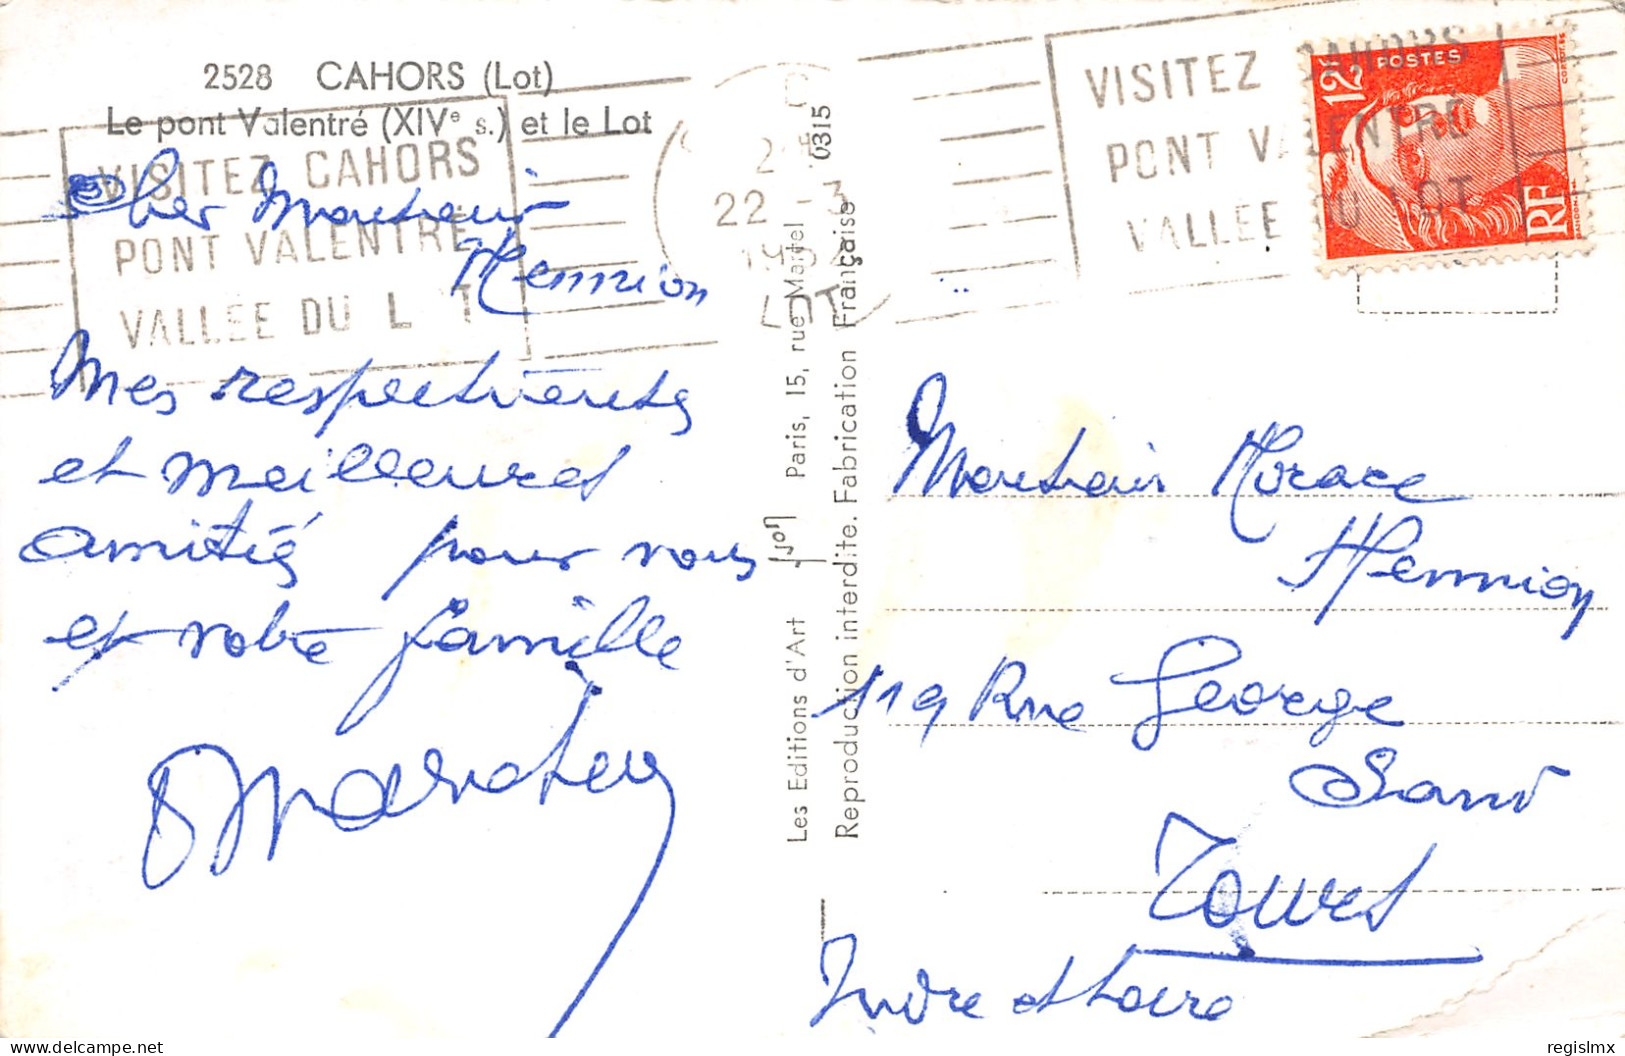 2528 CAHORS (Lot)
Le pont Valentré (XIVe s.) et le Lot
VISITEZ CAHORS
PONT VALENTRÉ
VALLEE DU L T
22 - 3
LOT
VISITEZ CAHORS
PONT VALENTRÉ
VALLEE DU LOT
12F POSTES
RF
Cher Monsieur
Hennion
Mes respectueuses
et meilleures
amitiés pour vous
et votre famille
Les Editions d'Art Yvon Paris, 15, rue Martel 0315
Reproduction interdite. Fabrication Française
Monsieur Horace
Hennion
119 Rue George
Sand
Tours
Indre et Loire
regislmx
delcampe.net